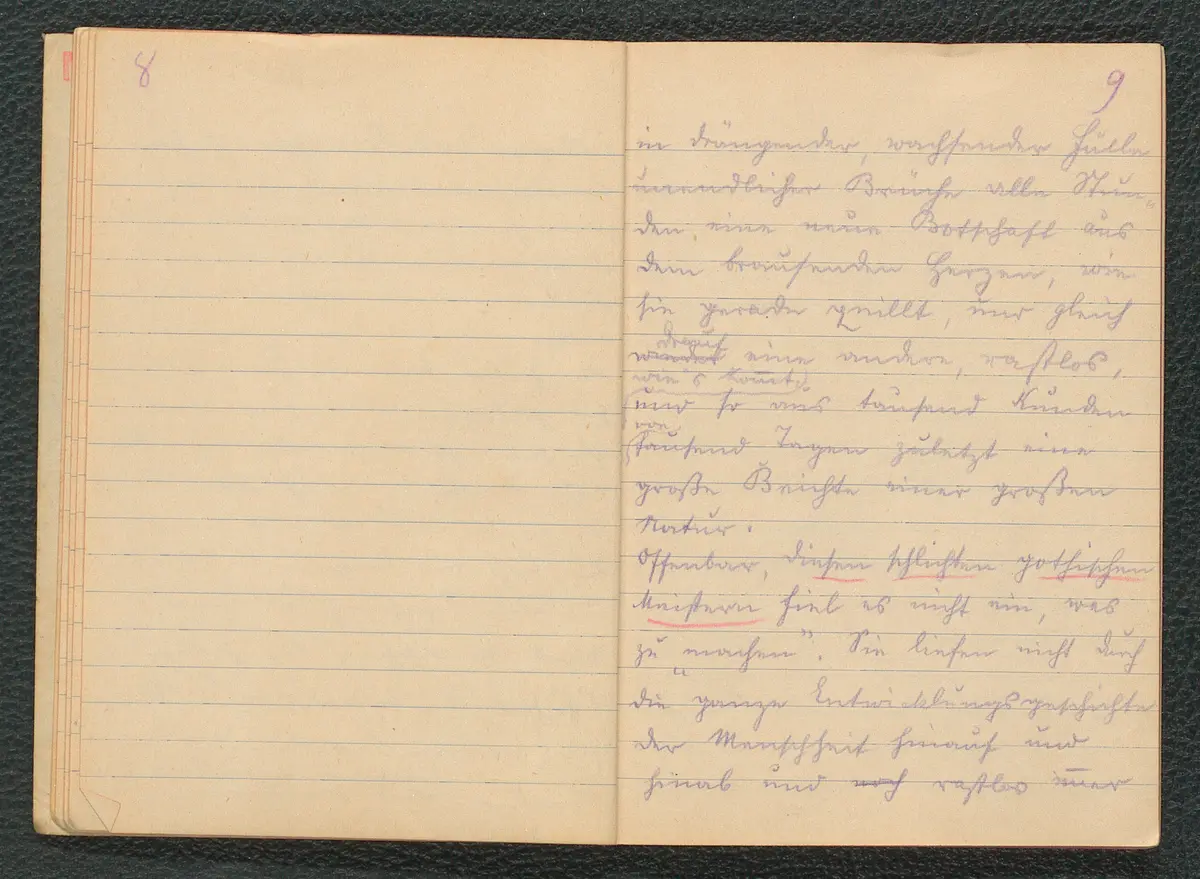 8
9
in drängender, wachsender Fülle
unendlicher Brüche alle Stun=
den, eine neue Botschaft aus
dem brausenden Herzen, wie
sie gerade quillt, und gleich
drauf
wieder eine andere, rastlos,
wie's kommt,
und so aus tausend Stunden
von
tausend Tagen zuletzt eine
große Beichte einer großen
Natur.
Offenbar, diesen schlichten gothischen
Meistern fiel es nicht ein, was
zu „machen". Sie liefen nicht durch
die ganze Entwicklungsgeschichte
der Menschheit hinauf und
hinab und noch rastlos immer